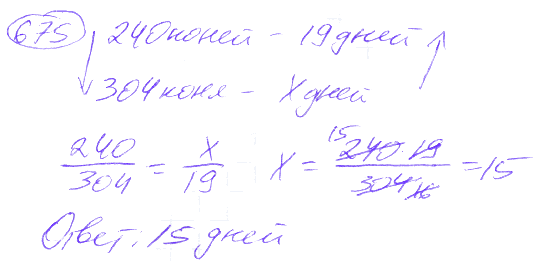 675 240 коней - 19 дней
304 коня - X дней
240/304 = X/19 X = 240·19/304 = 15 16 = 15
Ответ: 15 дней